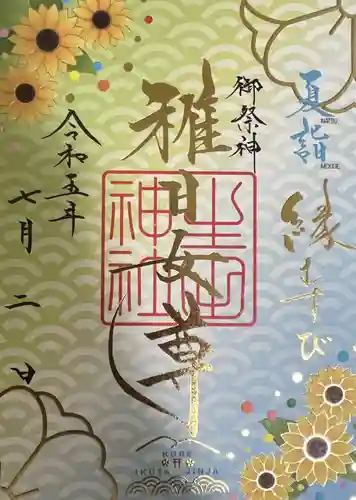 夏詣
NATSU
MOUDE
縁むすび
御祭神
稚日女尊
生田
神社
令和五年
七月二日
KOBE
IKUTA JINJA